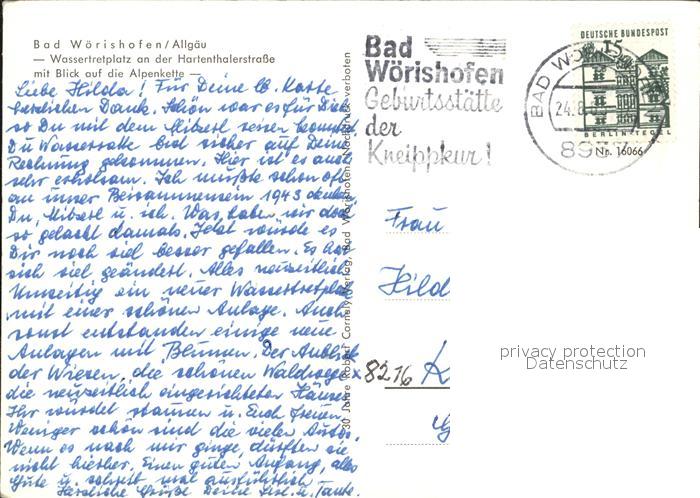 Bad Wörishofen/Allgäu
— Wassertretplatz an der Hartenthalerstraße
mit Blick auf die Alpenkette —
Liebe Hilda! Für Deine lb. Karte
herzlichen Dank. Schön war es für Dich
so Du mit dem
Du Wasserratte bist sicher auf Deine
Rechnung gekommen. Hier ist es auch
sehr erholsam. Ich mußte schon oft
an unser Beisammensein 1943 denken,
Du, u. ich. Was haben wir doch
so gelacht damals. Jetzt würde es
Dir noch viel besser gefallen. Es hat
sich viel geändert. Alles neuzeitlich.
ein neuer Wassertretplatz
mit einer schönen Anlage. Auch
sonst entstanden einige neue
Anlagen mit Blumen. Der Anblick
der Wiesen, die schönen Waldwege
die neuzeitlich eingerichteten Häuser
Ihr würdet staunen u. Euch freuen.
Weniger schön sind die vielen Autos.
Wenn es nach mir ginge, dürften sie
nicht hierher. Einen guten Anfang, alles
Gute u. schreib mal ausführlich
Herzliche Grüße Deine u. Tante.
30 Jahre Robert Cornely Verlag, Bad Wörishofen / Nachdruck verboten
Bad
Wörishofen
Geburtsstätte
der
Kneippkur!
BAD WÖ
24.8.
893
DEUTSCHE BUNDESPOST
15
BERLIN-TEGEL
Nr. 16066
Frau
Hild
8216 K
privacy protection
Datenschutz